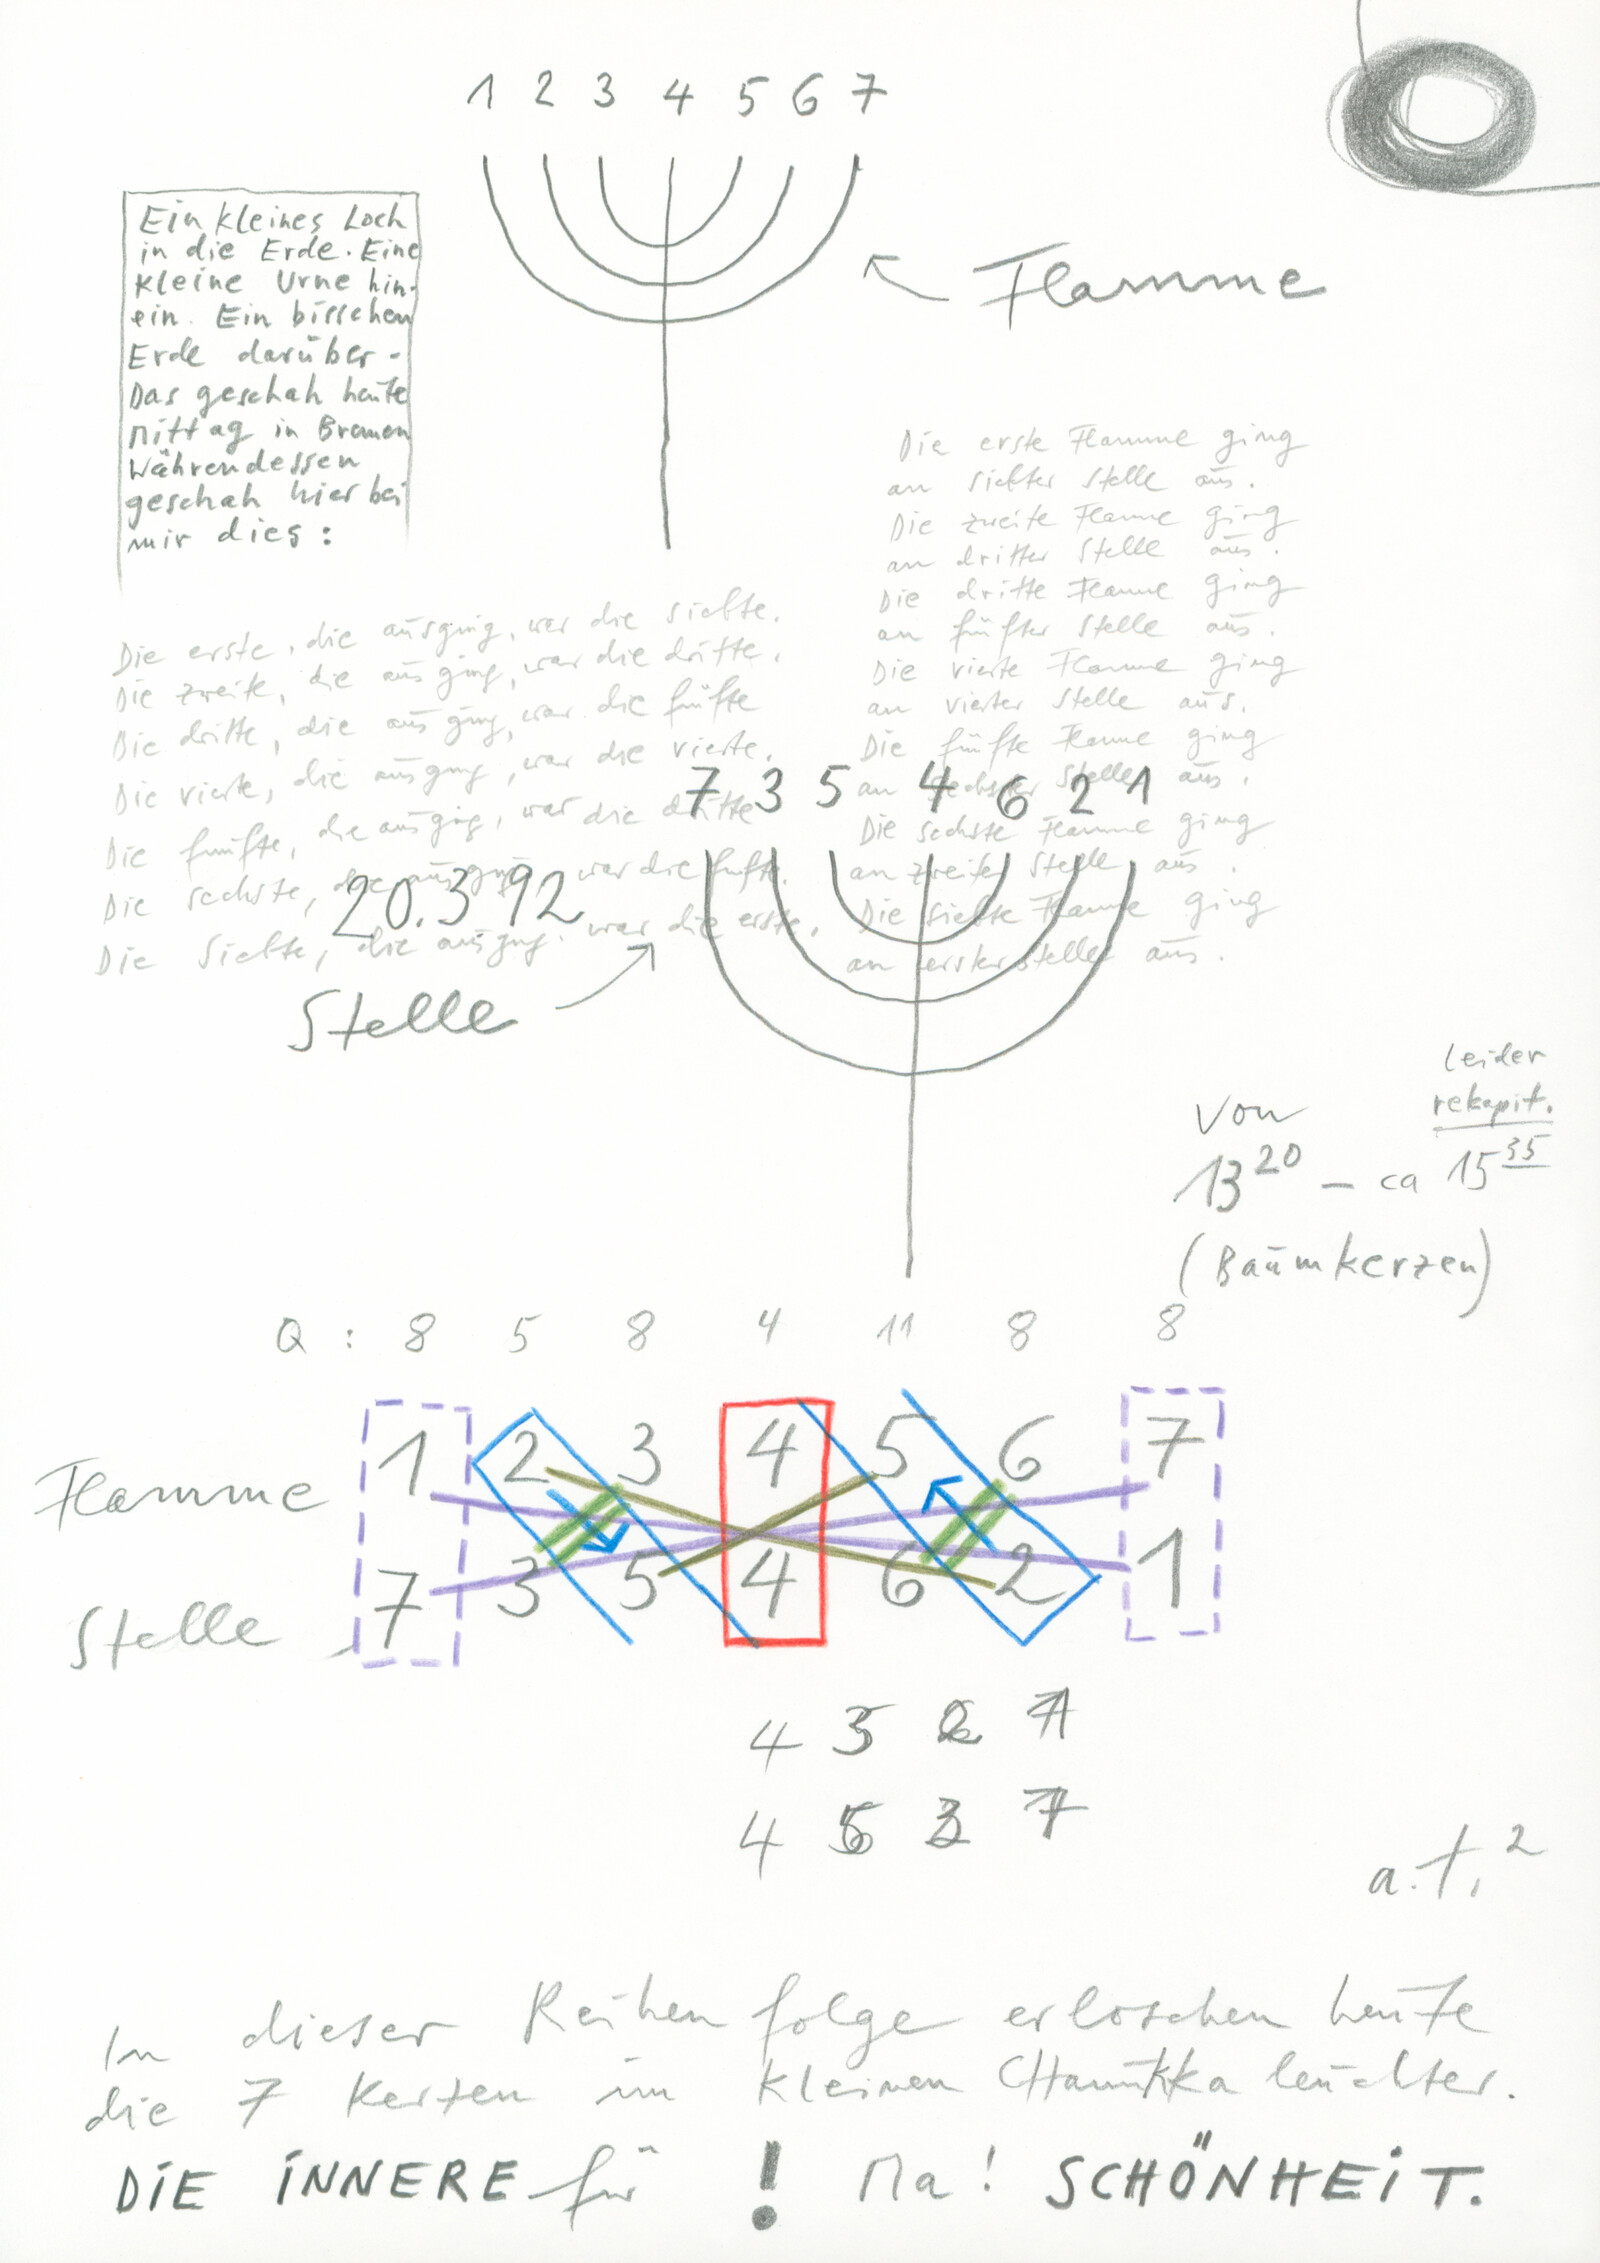 1 2 3 4 5 6 7
Ein kleines Loch
in die Erde. Eine
kleine Urne hin-
ein. Ein bisschen
Erde darüber -
Das geschah heute
Mittag in Bremen
Währendessen
geschah hier bei
mir dies:
Flamme
Die erste Flamme ging
an siebter Stelle aus.
Die zweite Flamme ging
an dritter Stelle aus.
Die dritte Flamme ging
an fünfter Stelle aus.
Die vierte Flamme ging
an vierter Stelle aus.
Die fünfte Flamme ging
an sechster Stelle aus.
Die sechste Flamme ging
an zweiter Stelle aus.
Die siebte Flamme ging
an erster Stelle aus.
Die erste, die ausging, war die siebte.
Die zweite, die ausging, war die dritte.
Die dritte, die ausging, war die fünfte
Die vierte, die ausging, war die vierte.
Die fünfte, die ausging, war die dritte
Die sechste, die ausging war die fünfte.
Die siebte, die ausging. war die erste.
7 3 5 4 6 2 1
20.3 92
Stelle
leider
rekapit.
Von
13 20 - ca 15 35
(Baumkerzen)
Q : 8 5 8 4 11 8 8
Flamme 1 2 3 4 5 6 7
Stelle 7 3 5 4 6 2 1
4
4
a.t.2
In dieser Reihenfolge erloschen heute
die 7 Kerzen im kleinen CHanukka leuchter.
DIE INNERE für ! Ma! SCHÖNHEIT.